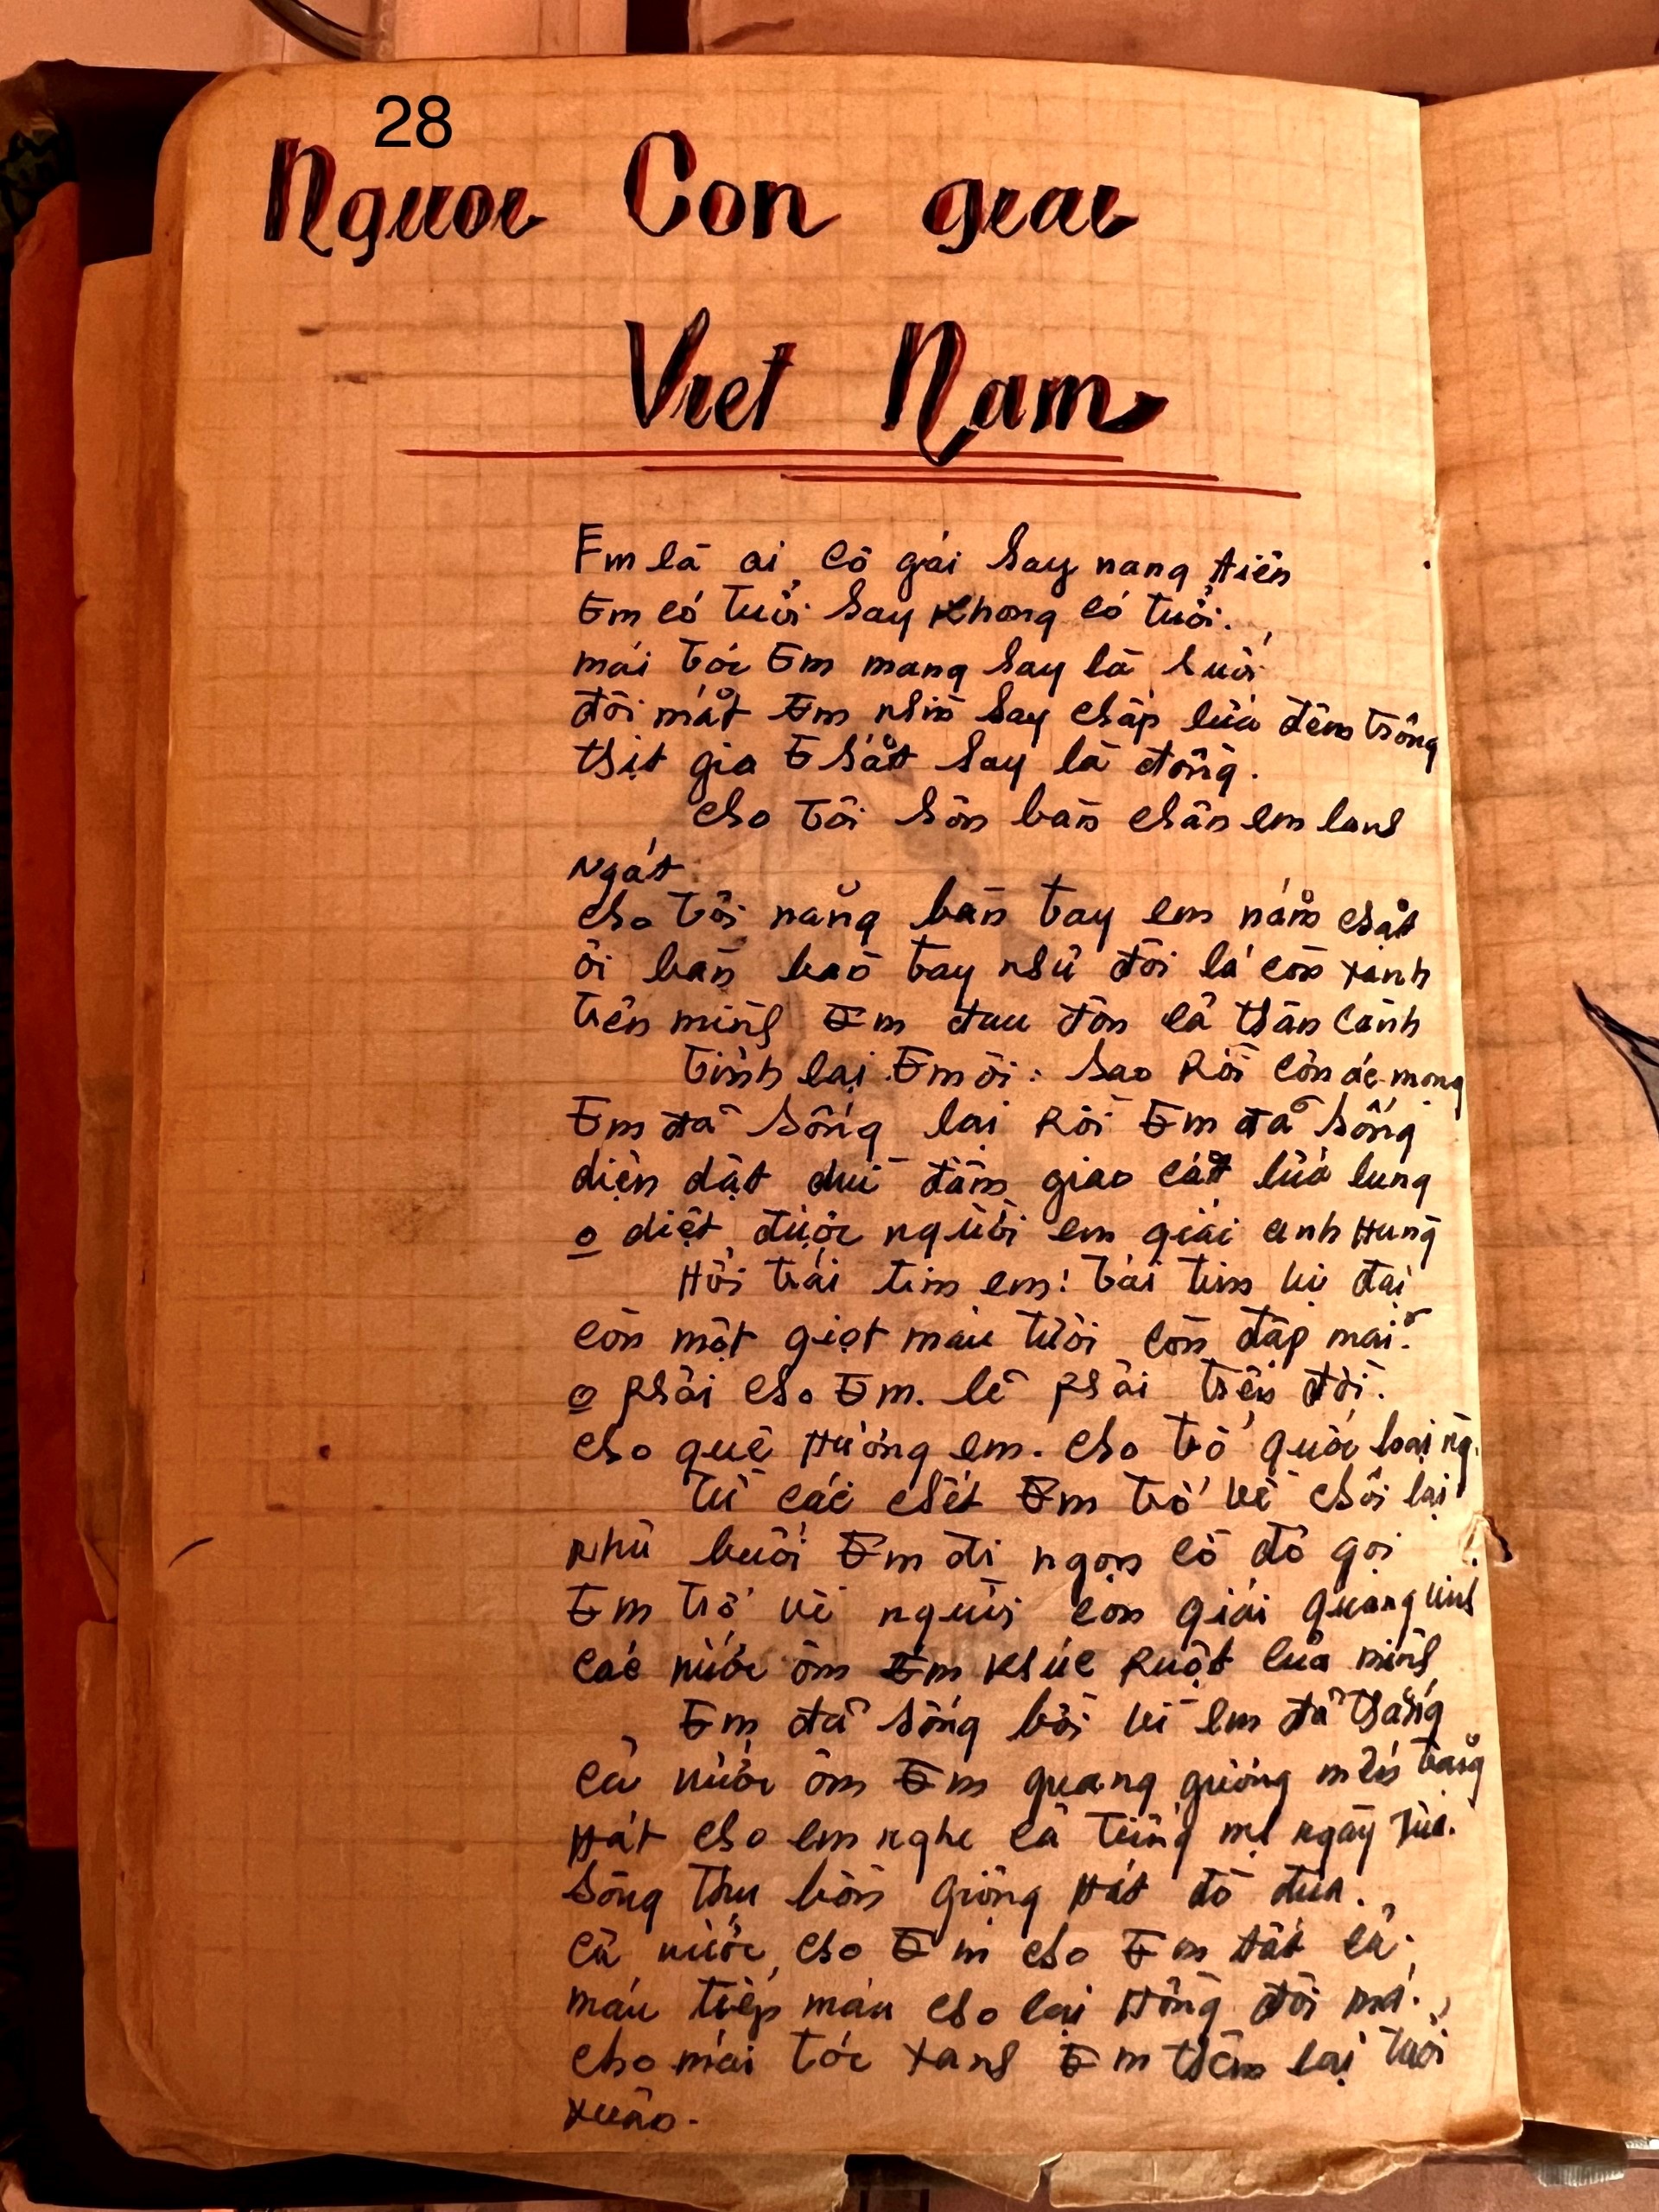 28
Nguoi Con giai
Viet Nam
Em là ai cô gái hay nang tiên
Em có tuổi hay khong có tuổi.
mái tóc Em mang hay là suối
đôi mắt Em nhìn hay chấp lửa đêm trông
thịt gia E sắt hay là đồng.
cho tôi hôn bàn chân em lanh
ngát
cho tôi nâng bàn tay em nắm chặt
ôi bàn bao tay như đôi lá còn xanh
trên mình Em đau đớn cả thân cành
tinh lại Em ơi: hao rồi cơn ác mong
Em đã sống lại rồi Em đã sống
diện dật dui đâm giao cắt lửa lung
o diệt được người em giái anh Hung
Hỡi trái tim em! trái tim vi đại
còn một giọt máu tươi còn đập mãi.
o phải cho Em. lẽ phải trên đời.
cho quê Hương em. cho tổ quốc loại ng.
Từ cái chết Em trở về chói lại
như buổi Em đi ngọn cờ đỏ gọi
Em trở về người con giái quang vinh
các nước ôm Em khúc ruột của mình
Em đã sống bởi vì em đã thắng
cả nước ôm Em quang giường nệm trắng
Hát cho em nghe cả tiếng mẹ ngày xưa.
Sông Thu bồn giọng Hát đò đưa.
cả nước cho Em cho Em tất cả
máu tiếp máu cho lại Hồng đôi má.
cho mái tóc xanh Em thêm lại tuổi
xuân.